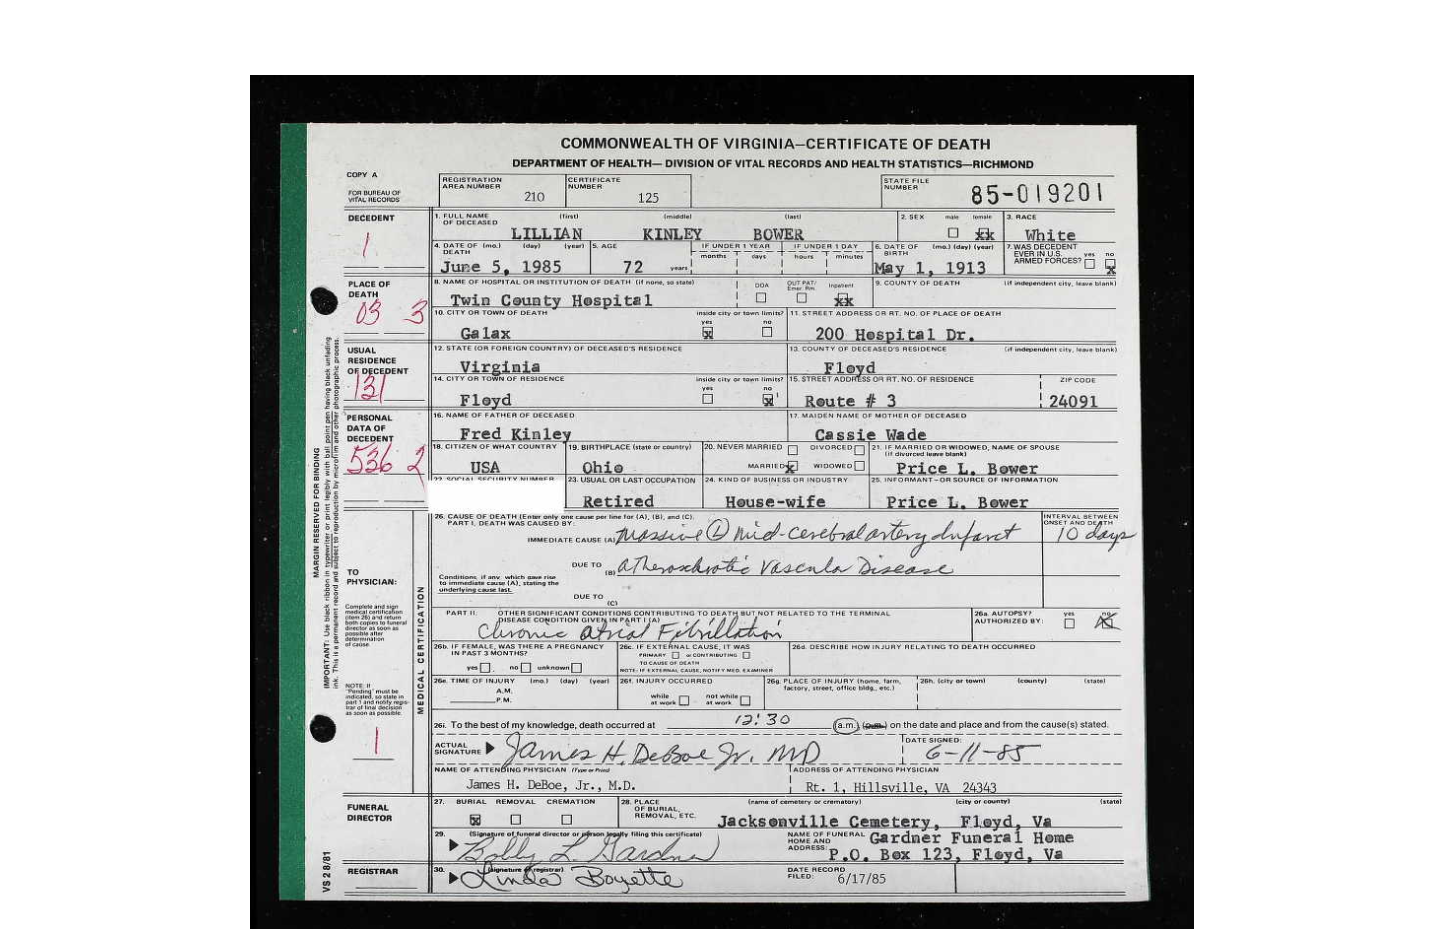 COMMONWEALTH OF VIRGINIA—CERTIFICATE OF DEATH
DEPARTMENT OF HEALTH— DIVISION OF VITAL RECORDS AND HEALTH STATISTICS—RICHMOND
COPY A
FOR BUREAU OF VITAL RECORDS
REGISTRATION AREA NUMBER 210
CERTIFICATE NUMBER 125
STATE FILE NUMBER 85-019201
DECEDENT
1
1. FULL NAME OF DECEASED (first) (middle) (last)
LILLIAN KINLEY BOWER
2. SEX male female xx
3. RACE White
4. DATE OF DEATH (mo.) (day) (year) June 5, 1985
5. AGE 72 years
IF UNDER 1 YEAR months days
IF UNDER 1 DAY hours minutes
6. DATE OF BIRTH (mo.) (day) (year) May 1, 1913
7. WAS DECEDENT EVER IN U.S. ARMED FORCES? yes no x
PLACE OF DEATH
03 3
8. NAME OF HOSPITAL OR INSTITUTION OF DEATH (if none, so state)
Twin County Hospital
DOA OUT PAT/ Emer. Rm. Inpatient xx
9. COUNTY OF DEATH (if independent city, leave blank)
10. CITY OR TOWN OF DEATH inside city or town limits? yes no
Galax x
11. STREET ADDRESS OR RT. NO. OF PLACE OF DEATH
200 Hospital Dr.
USUAL RESIDENCE OF DECEDENT
131
12. STATE (OR FOREIGN COUNTRY) OF DECEASED'S RESIDENCE
Virginia
13. COUNTY OF DECEASED'S RESIDENCE (if independent city, leave blank)
Floyd
14. CITY OR TOWN OF RESIDENCE inside city or town limits? yes no
Floyd x
15. STREET ADDRESS OR RT. NO. OF RESIDENCE ZIP CODE
Route # 3 24091
PERSONAL DATA OF DECEDENT
536 2
16. NAME OF FATHER OF DECEASED
Fred Kinley
17. MAIDEN NAME OF MOTHER OF DECEASED
Cassie Wade
18. CITIZEN OF WHAT COUNTRY USA
19. BIRTHPLACE (state or country) Ohio
20. NEVER MARRIED DIVORCED
MARRIED x WIDOWED
21. IF MARRIED OR WIDOWED, NAME OF SPOUSE (if divorced leave blank)
Price L. Bower
22. SOCIAL SECURITY NUMBER
23. USUAL OR LAST OCCUPATION Retired
24. KIND OF BUSINESS OR INDUSTRY House-wife
25. INFORMANT—OR SOURCE OF INFORMATION Price L. Bower
MARGIN RESERVED FOR BINDING
MEDICAL CERTIFICATION
26. CAUSE OF DEATH (Enter only one cause per line for (A), (B), and (C).
PART I. DEATH WAS CAUSED BY:
IMMEDIATE CAUSE (A) Massive Ⓛ Mid-cerebral artery Infarct
INTERVAL BETWEEN ONSET AND DEATH 10 days
DUE TO (B) Atherosclerotic Vascular Disease
Conditions, if any, which gave rise to immediate cause (A), stating the underlying cause last.
DUE TO (C)
TO PHYSICIAN:
Complete and sign medical certification (item 26) and return both copies to funeral director as soon as possible after determination of cause.
PART II. OTHER SIGNIFICANT CONDITIONS CONTRIBUTING TO DEATH BUT NOT RELATED TO THE TERMINAL DISEASE CONDITION GIVEN IN PART I (A)
Chronic Atrial Fibrillation
26a. AUTOPSY? AUTHORIZED BY: yes no
26b. IF FEMALE, WAS THERE A PREGNANCY IN PAST 3 MONTHS?
yes no unknown
26c. IF EXTERNAL CAUSE, IT WAS
PRIMARY or CONTRIBUTING
TO CAUSE OF DEATH
NOTE: IF EXTERNAL CAUSE, NOTIFY MED. EXAMINER
26d. DESCRIBE HOW INJURY RELATING TO DEATH OCCURRED
NOTE: If "Pending" must be indicated, so state in part 1 and notify registrar of final decision as soon as possible.
26e. TIME OF INJURY (mo.) (day) (year)
A.M.
P.M.
26f. INJURY OCCURRED
while at work not while at work
26g. PLACE OF INJURY (home, farm, factory, street, office bldg., etc.)
26h. (city or town) (county) (state)
1
26i. To the best of my knowledge, death occurred at 12:30 (a.m.) (p.m.) on the date and place and from the cause(s) stated.
ACTUAL SIGNATURE James H. DeBoe Jr. MD
DATE SIGNED: 6-11-85
NAME OF ATTENDING PHYSICIAN (Type or Print)
James H. DeBoe, Jr., M.D.
ADDRESS OF ATTENDING PHYSICIAN
Rt. 1, Hillsville, VA 24343
FUNERAL DIRECTOR
27. BURIAL REMOVAL CREMATION
x
28. PLACE OF BURIAL, REMOVAL, ETC. (name of cemetery or crematory) (city or county) (state)
Jacksonville Cemetery, Floyd, Va
29. (Signature of funeral director or person legally filing this certificate)
Bobby L. Gardner
NAME OF FUNERAL HOME AND ADDRESS: Gardner Funeral Home
P.O. Box 123, Floyd, Va
REGISTRAR
30. (signature of registrar)
Linda Boyette
DATE RECORD FILED: 6/17/85
VS 2 8/81